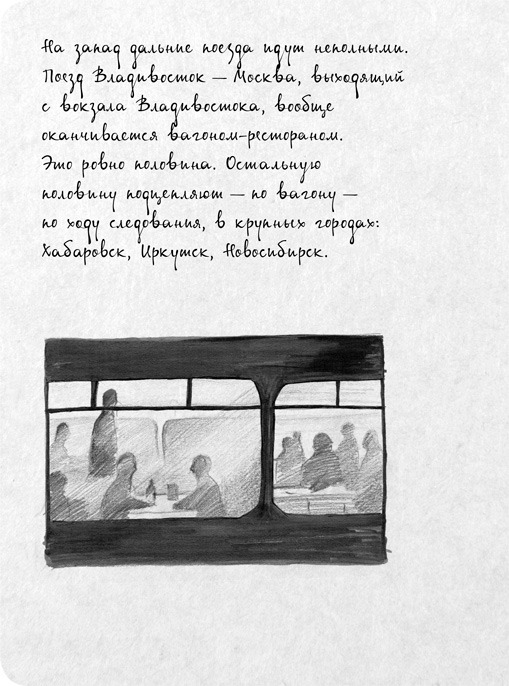 На запад дальние поезда идут неполными.
Поезд Владивосток — Москва, выходящий
с вокзала Владивостока, вообще
оканчивается вагоном-рестораном.
Это ровно половина. Остальную
половину подцепляют — по вагону —
по ходу следования, в крупных городах:
Хабаровск, Иркутск, Новосибирск.